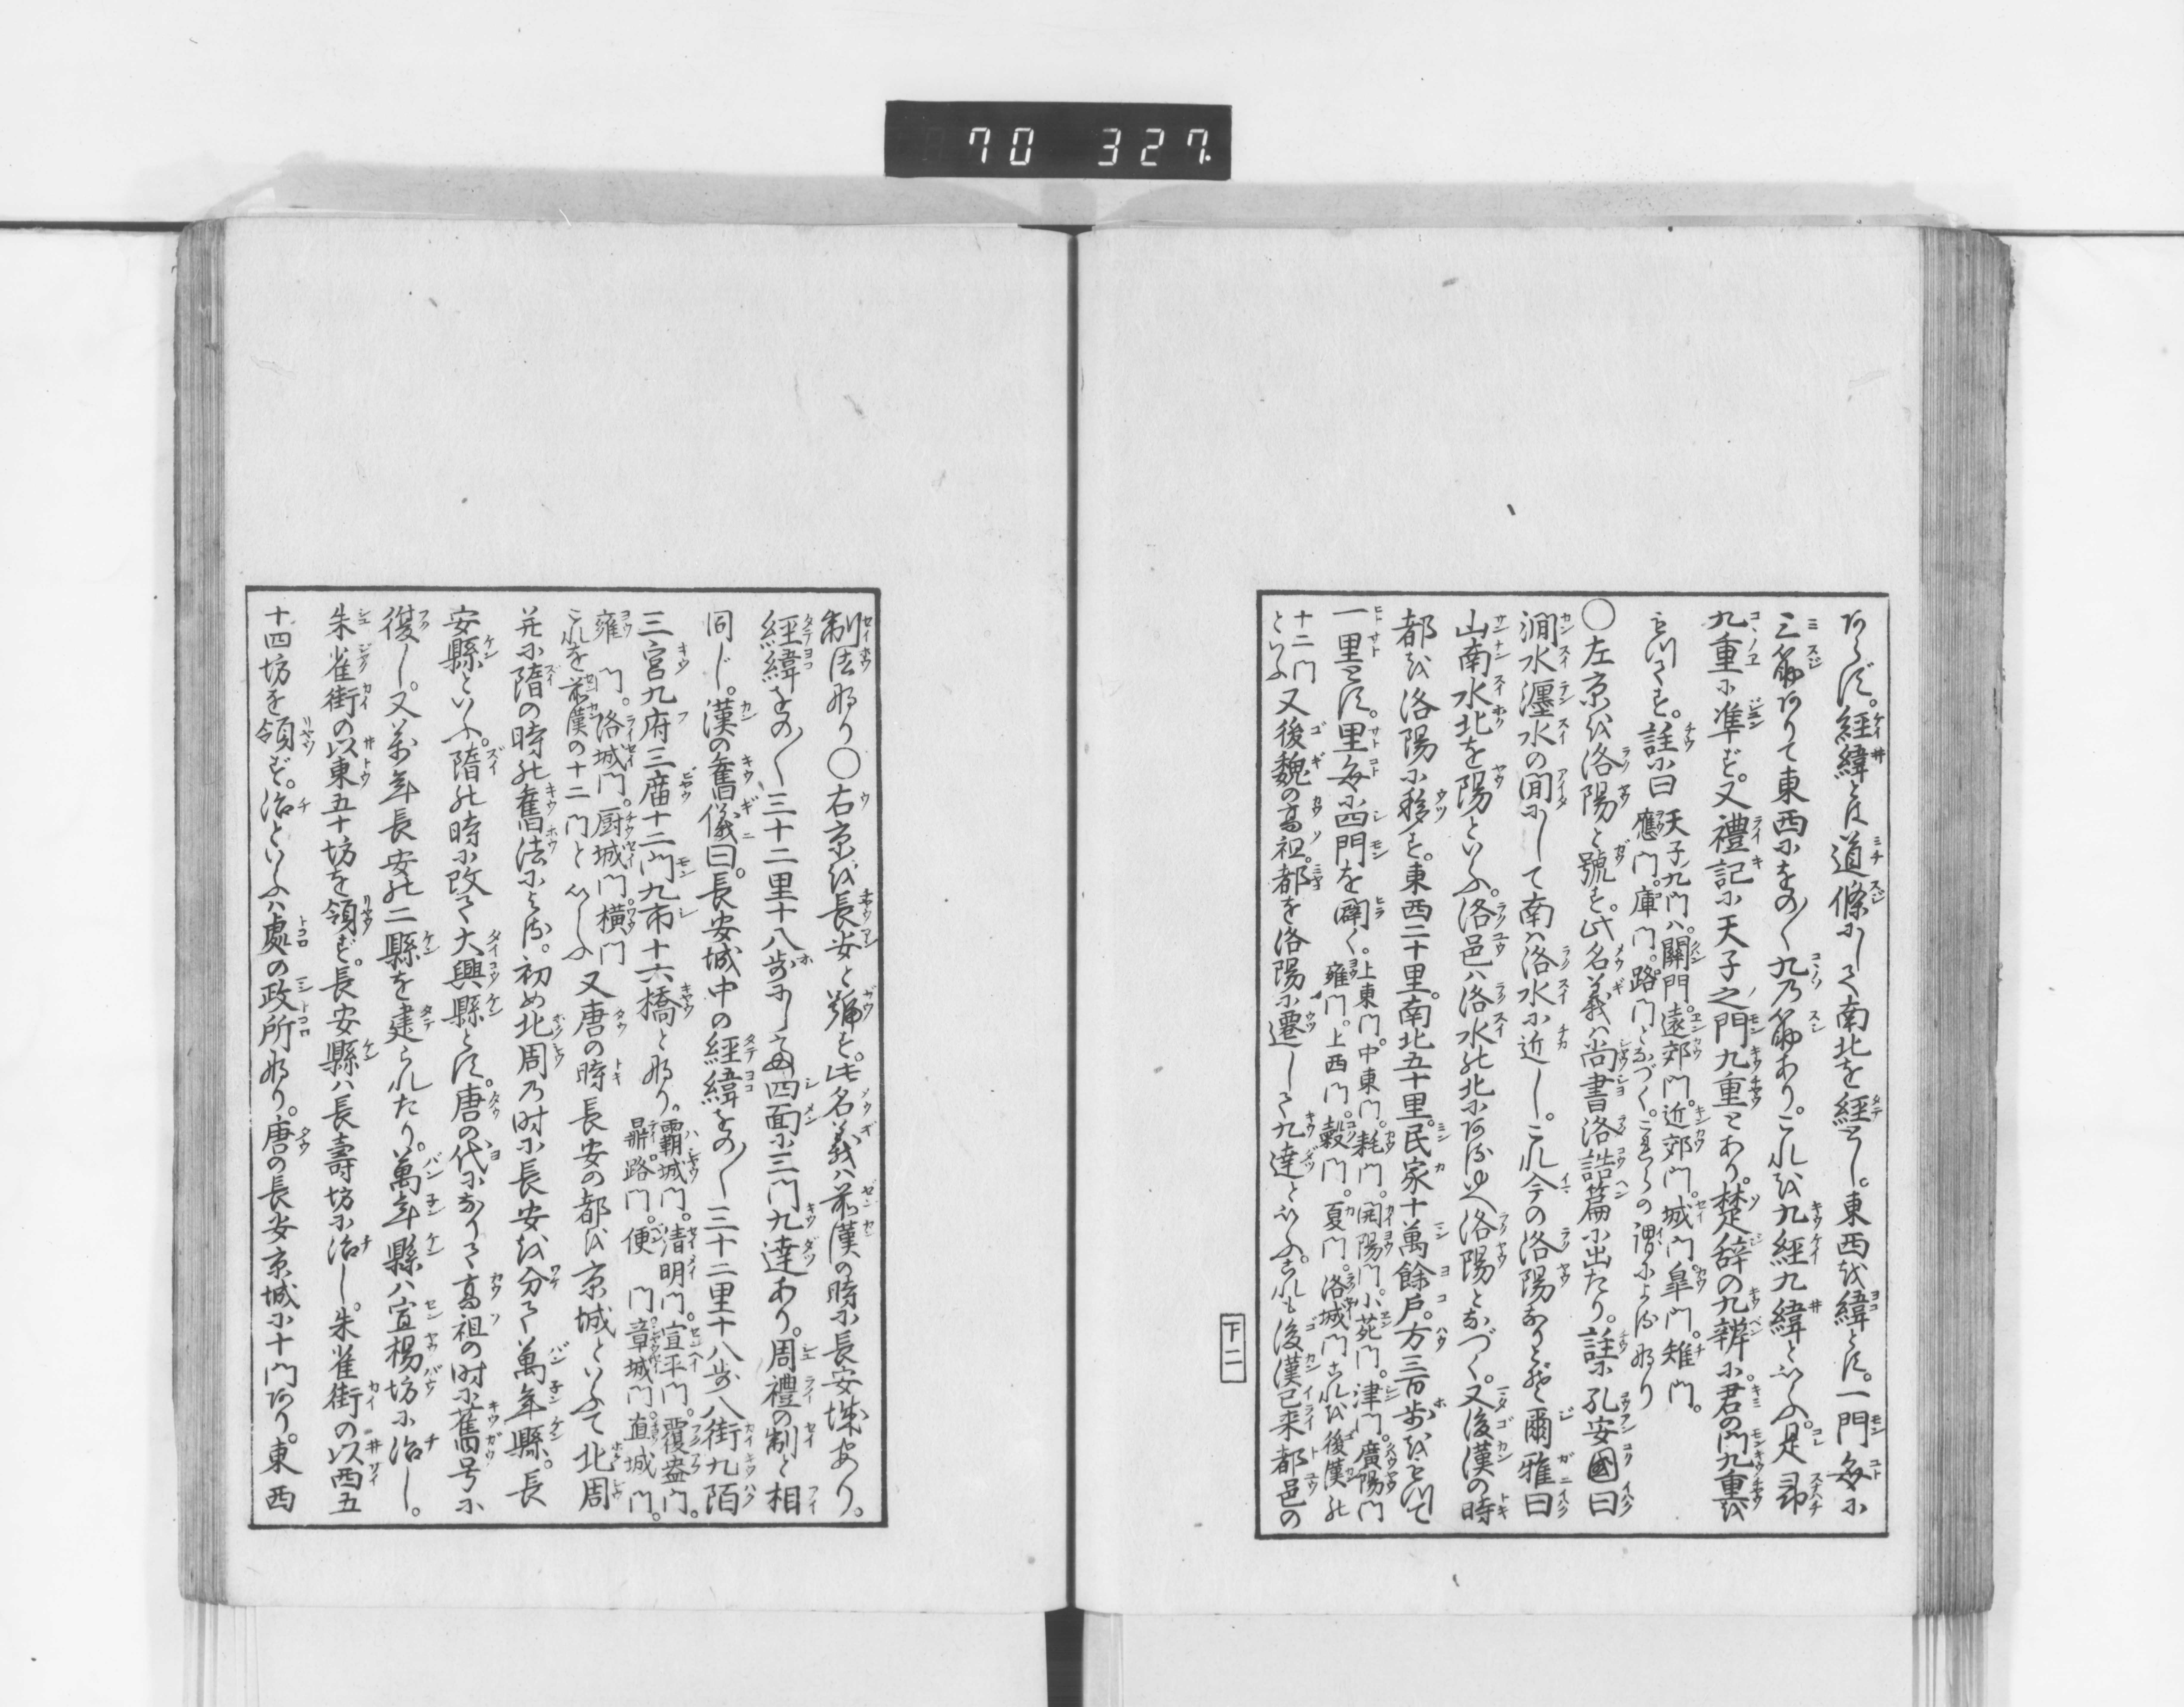 70 327.
あらず。経緯とは道條にして南北を経とし。東西を緯とす。一門毎に
三筋ありて東西にをの〱九乃筋あり。これを九経九緯といふ。是即
九重に準ず。又禮記に天子之門九重とあり。楚辞の九辨に。君の門九重を
もつてす。註に曰 天子九門ハ。關門。遠郊門。近郊門。城門。皐門。雉門。
應門。庫門。路門となづく。これらの謂によるなり
〇左京を洛陽と號す。此名義ハ尚書洛誥篇に出たり。註に孔安國曰
澗水瀍水の間にして南ハ洛水に近し。これ今の洛陽なりとぞ。爾雅曰
山南水北を陽といふ。洛邑ハ洛水の北にあるゆへ洛陽となづく。又後漢の時
都を洛陽に移す。東西二十里。南北五十里。民家十萬餘戸。方三百歩をもつて
一里とす。里毎に四門を闢く。上東門。中東門。耗門。開陽門。小苑門。津門。廣陽門
雍門。上西門。穀門。夏門。洛城門これを後漢の
十二門
といふ 又後魏の高祖。都を洛陽に遷して九達といふ。これも後漢已来都邑の
下二
制法なり〇右京を長安と號す。此名義ハ前漢の時に長安城あり。
経緯をの〱三十二里十八歩にして四面に三門九達あり。周禮の制と相
同じ。漢の舊儀曰。長安城中の経緯をの〱三十二里十八歩八街九陌
三宮九府三廟十二門九市十六橋となり。覇城門。清明門。宣平門。覆盎門。
鼎路門。便門。章城門。直城門。
雍門。洛城門。厨城門。横門
これを前漢の十二門といふ 又唐の時長安の都を京城といふて北周
并に隋の時の舊法による。初め北周乃时に長安を分て萬年縣。長
安縣といふ。隋の時に改て大興縣とす。唐の代になりて高祖の时に舊号に
復し。又萬年長安の二縣を建られたり。萬年縣ハ宣楊坊に治し。
朱雀街の以東五十坊を領ず。長安縣ハ長壽坊に治し。朱雀街の以西五
十四坊を領ず。治といふハ處の政所なり。唐の長安京城に十門あり。東西